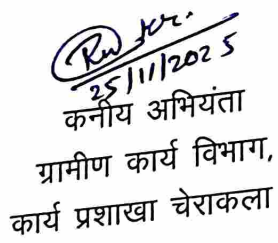 25/11/2025
कनीय अभियंता
ग्रामीण कार्य विभाग,
कार्य प्रशाखा चेराकला